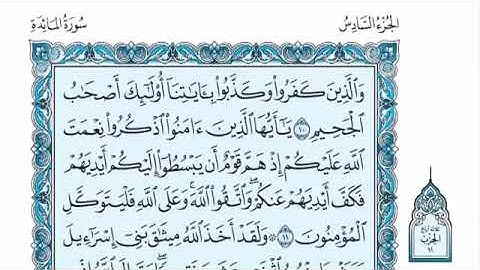 سُورَةُ المَائِدَةِ
الجُزْءُ السَّادِسُ
وَالَّذِينَ كَفَرُوا۟ وَكَذَّبُوا۟ بِـَٔايَـٰتِنَآ أُو۟لَـٰٓئِكَ أَصْحَـٰبُ
ٱلْجَحِيمِ ١٠ يَـٰٓأَيُّهَا ٱلَّذِينَ ءَامَنُوا۟ ٱذْكُرُوا۟ نِعْمَتَ
ٱللَّهِ عَلَيْكُمْ إِذْ هَمَّ قَوْمٌ أَن يَبْسُطُوٓا۟ إِلَيْكُمْ أَيْدِيَهُمْ
فَكَفَّ أَيْدِيَهُمْ عَنكُمْ ۖ وَٱتَّقُوا۟ ٱللَّهَ ۚ وَعَلَى ٱللَّهِ فَلْيَتَوَكَّلِ
ٱلْمُؤْمِنُونَ ١١ ۞ وَلَقَدْ أَخَذَ ٱللَّهُ مِيثَـٰقَ بَنِىٓ إِسْرَٰٓءِيلَ
الحِزْبُ
١١